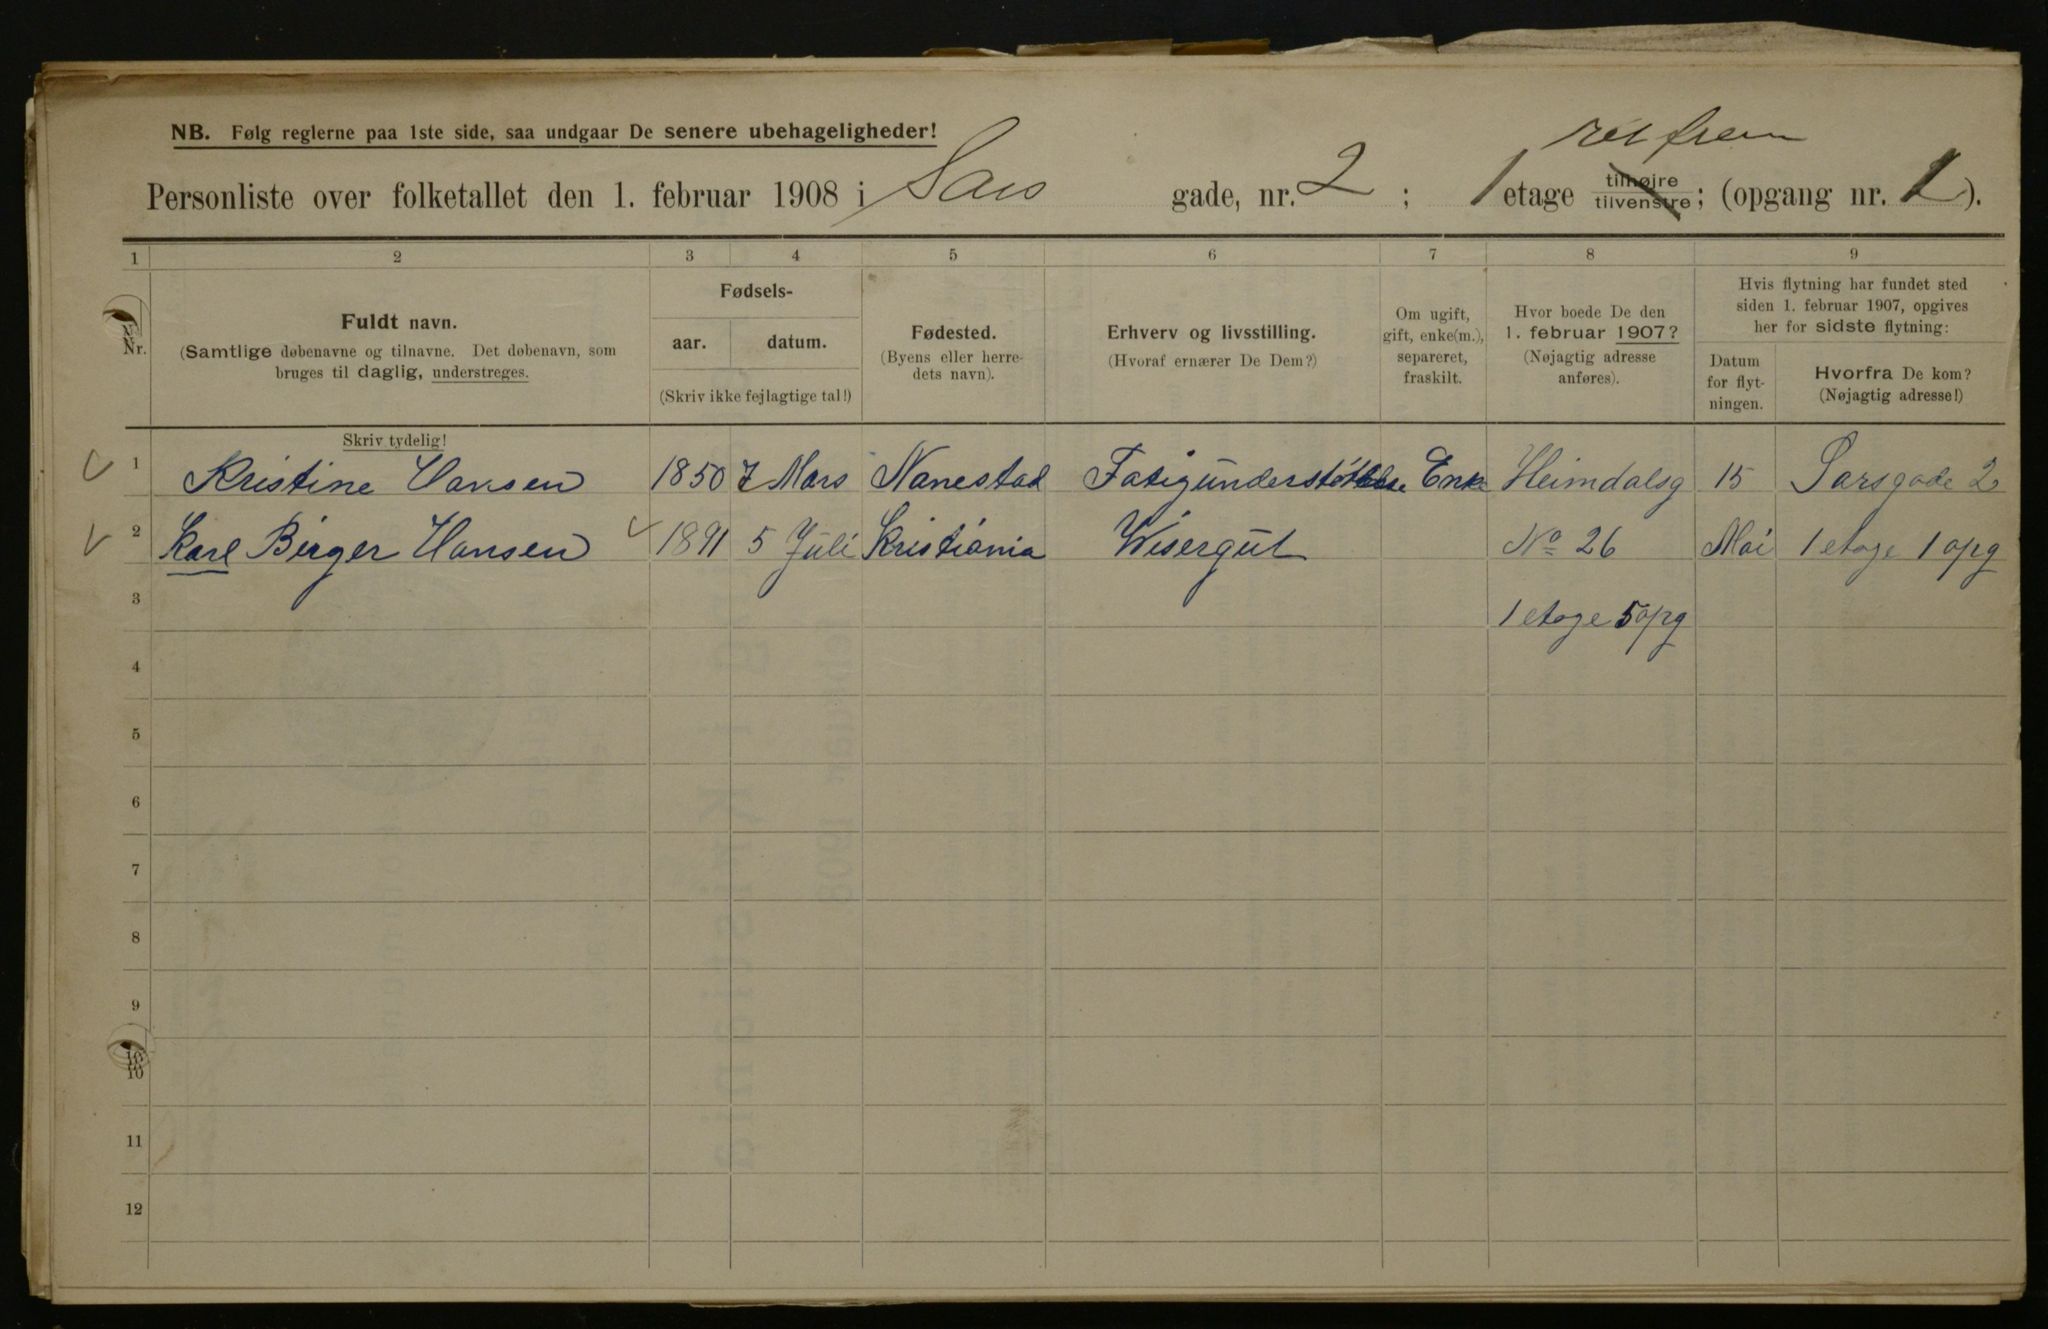 ret frem
NB. Følg reglerne paa 1ste side, saa undgaar De senere ubehageligheder!
Personliste over folketallet den 1. februar 1908 i Sars gade, nr. 2 ; 1 etage tilhøjre tilvenstre ; (opgang nr. 1 ).
1 2 3 4 5 6 7 8 9
Nr.
Fuldt navn.
(Samtlige døbenavne og tilnavne. Det døbenavn, som
bruges til daglig, understreges.
Skriv tydelig!
Fødsels-
aar. datum.
(Skriv ikke fejlagtige tal!)
Fødested.
(Byens eller herre-
dets navn).
Erhverv og livsstilling.
(Hvoraf ernærer De Dem?)
Om ugift,
gift, enke(m.),
separeret,
fraskilt.
Hvor boede De den
1. februar 1907?
(Nøjagtig adresse
anføres).
Hvis flytning har fundet sted
siden 1. februar 1907, opgives
her for sidste flytning:
Datum
for flyt-
ningen.
Hvorfra De kom?
(Nøjagtig adresse!)
1 Kristine Hansen 1850 7 Mars Nanestad Fatigunderstøttelse Enke Heimdalsg 15 Sarsgade 2
2 Karl Birger Hansen 1891 5 Juli Kristiania Wisergut No 26 Mai 1 etage 1 opg
3 1 etage 5 opg
4
5
6
7
8
9
10
10
11
12